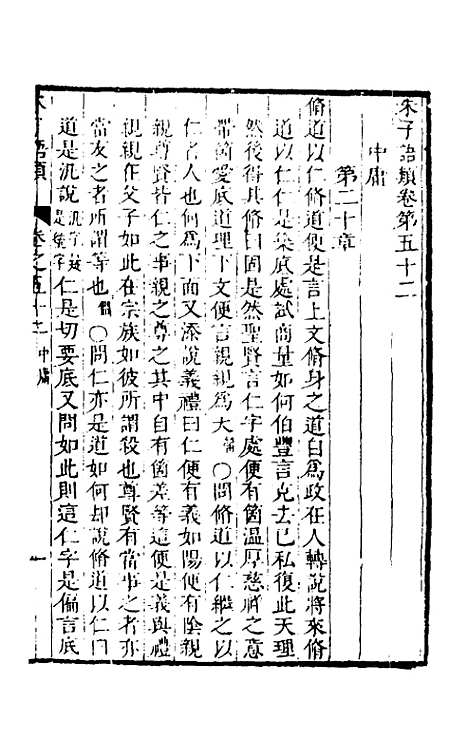 朱子語類卷第五十二
中庸
第二十章
脩道以仁脩道便是言上文脩身之道自爲政在人轉說將來脩
道以仁仁是築底處試商量如何伯豐言克去己私復此天理
然後得其脩曰固是然聖賢言仁字處便有箇溫厚慈祥之意
帶箇愛底道理下文便言親親爲大㽦〇問脩道以仁繼之以
仁者人也何爲下面又添說義禮曰仁便有義如陽便有陰親
親尊賢皆仁之事親之尊之其中自有箇差等這便是義與禮
親親在父子如此在宗族如彼所謂殺也尊賢有當事之者亦
當友之者所謂等也㽦〇問仁亦是道如何却說脩道以仁曰
道是汎說汎字疑是統字仁是切要底又問如此則這仁字是偏言底
卷之五十二 中庸
一